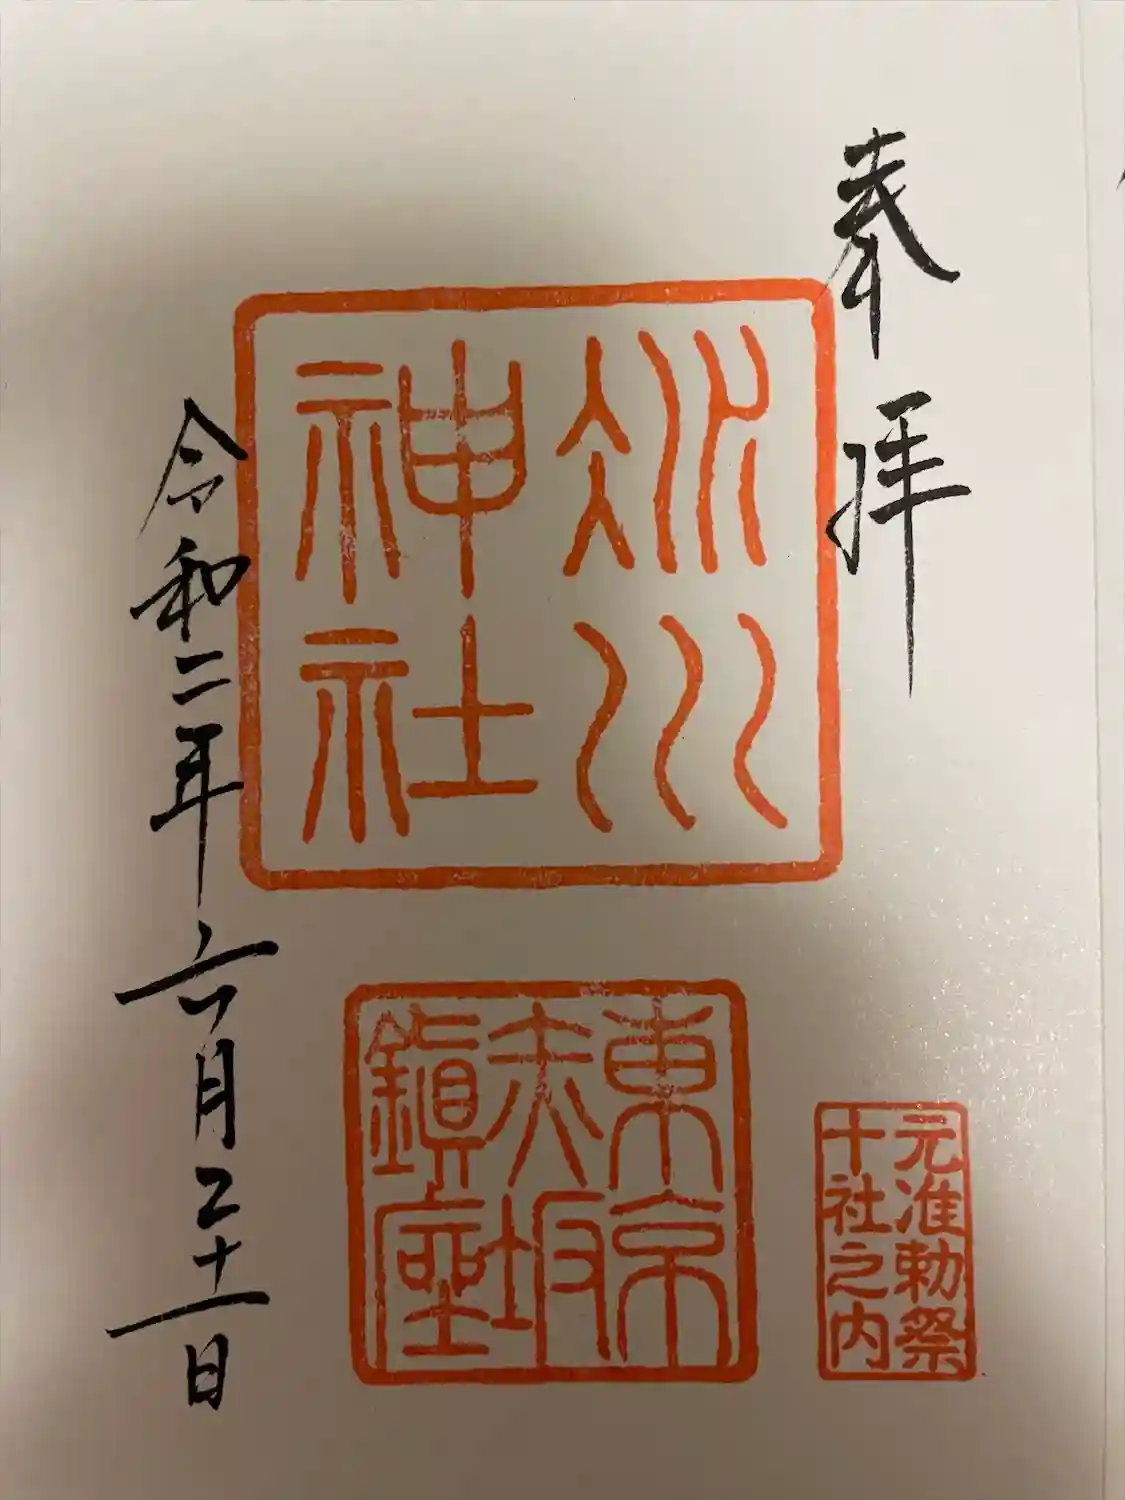 奉拝
冰川
神社
元准勅祭
十社之内
東京
赤坂
鎭座
令和二年六月二十一日